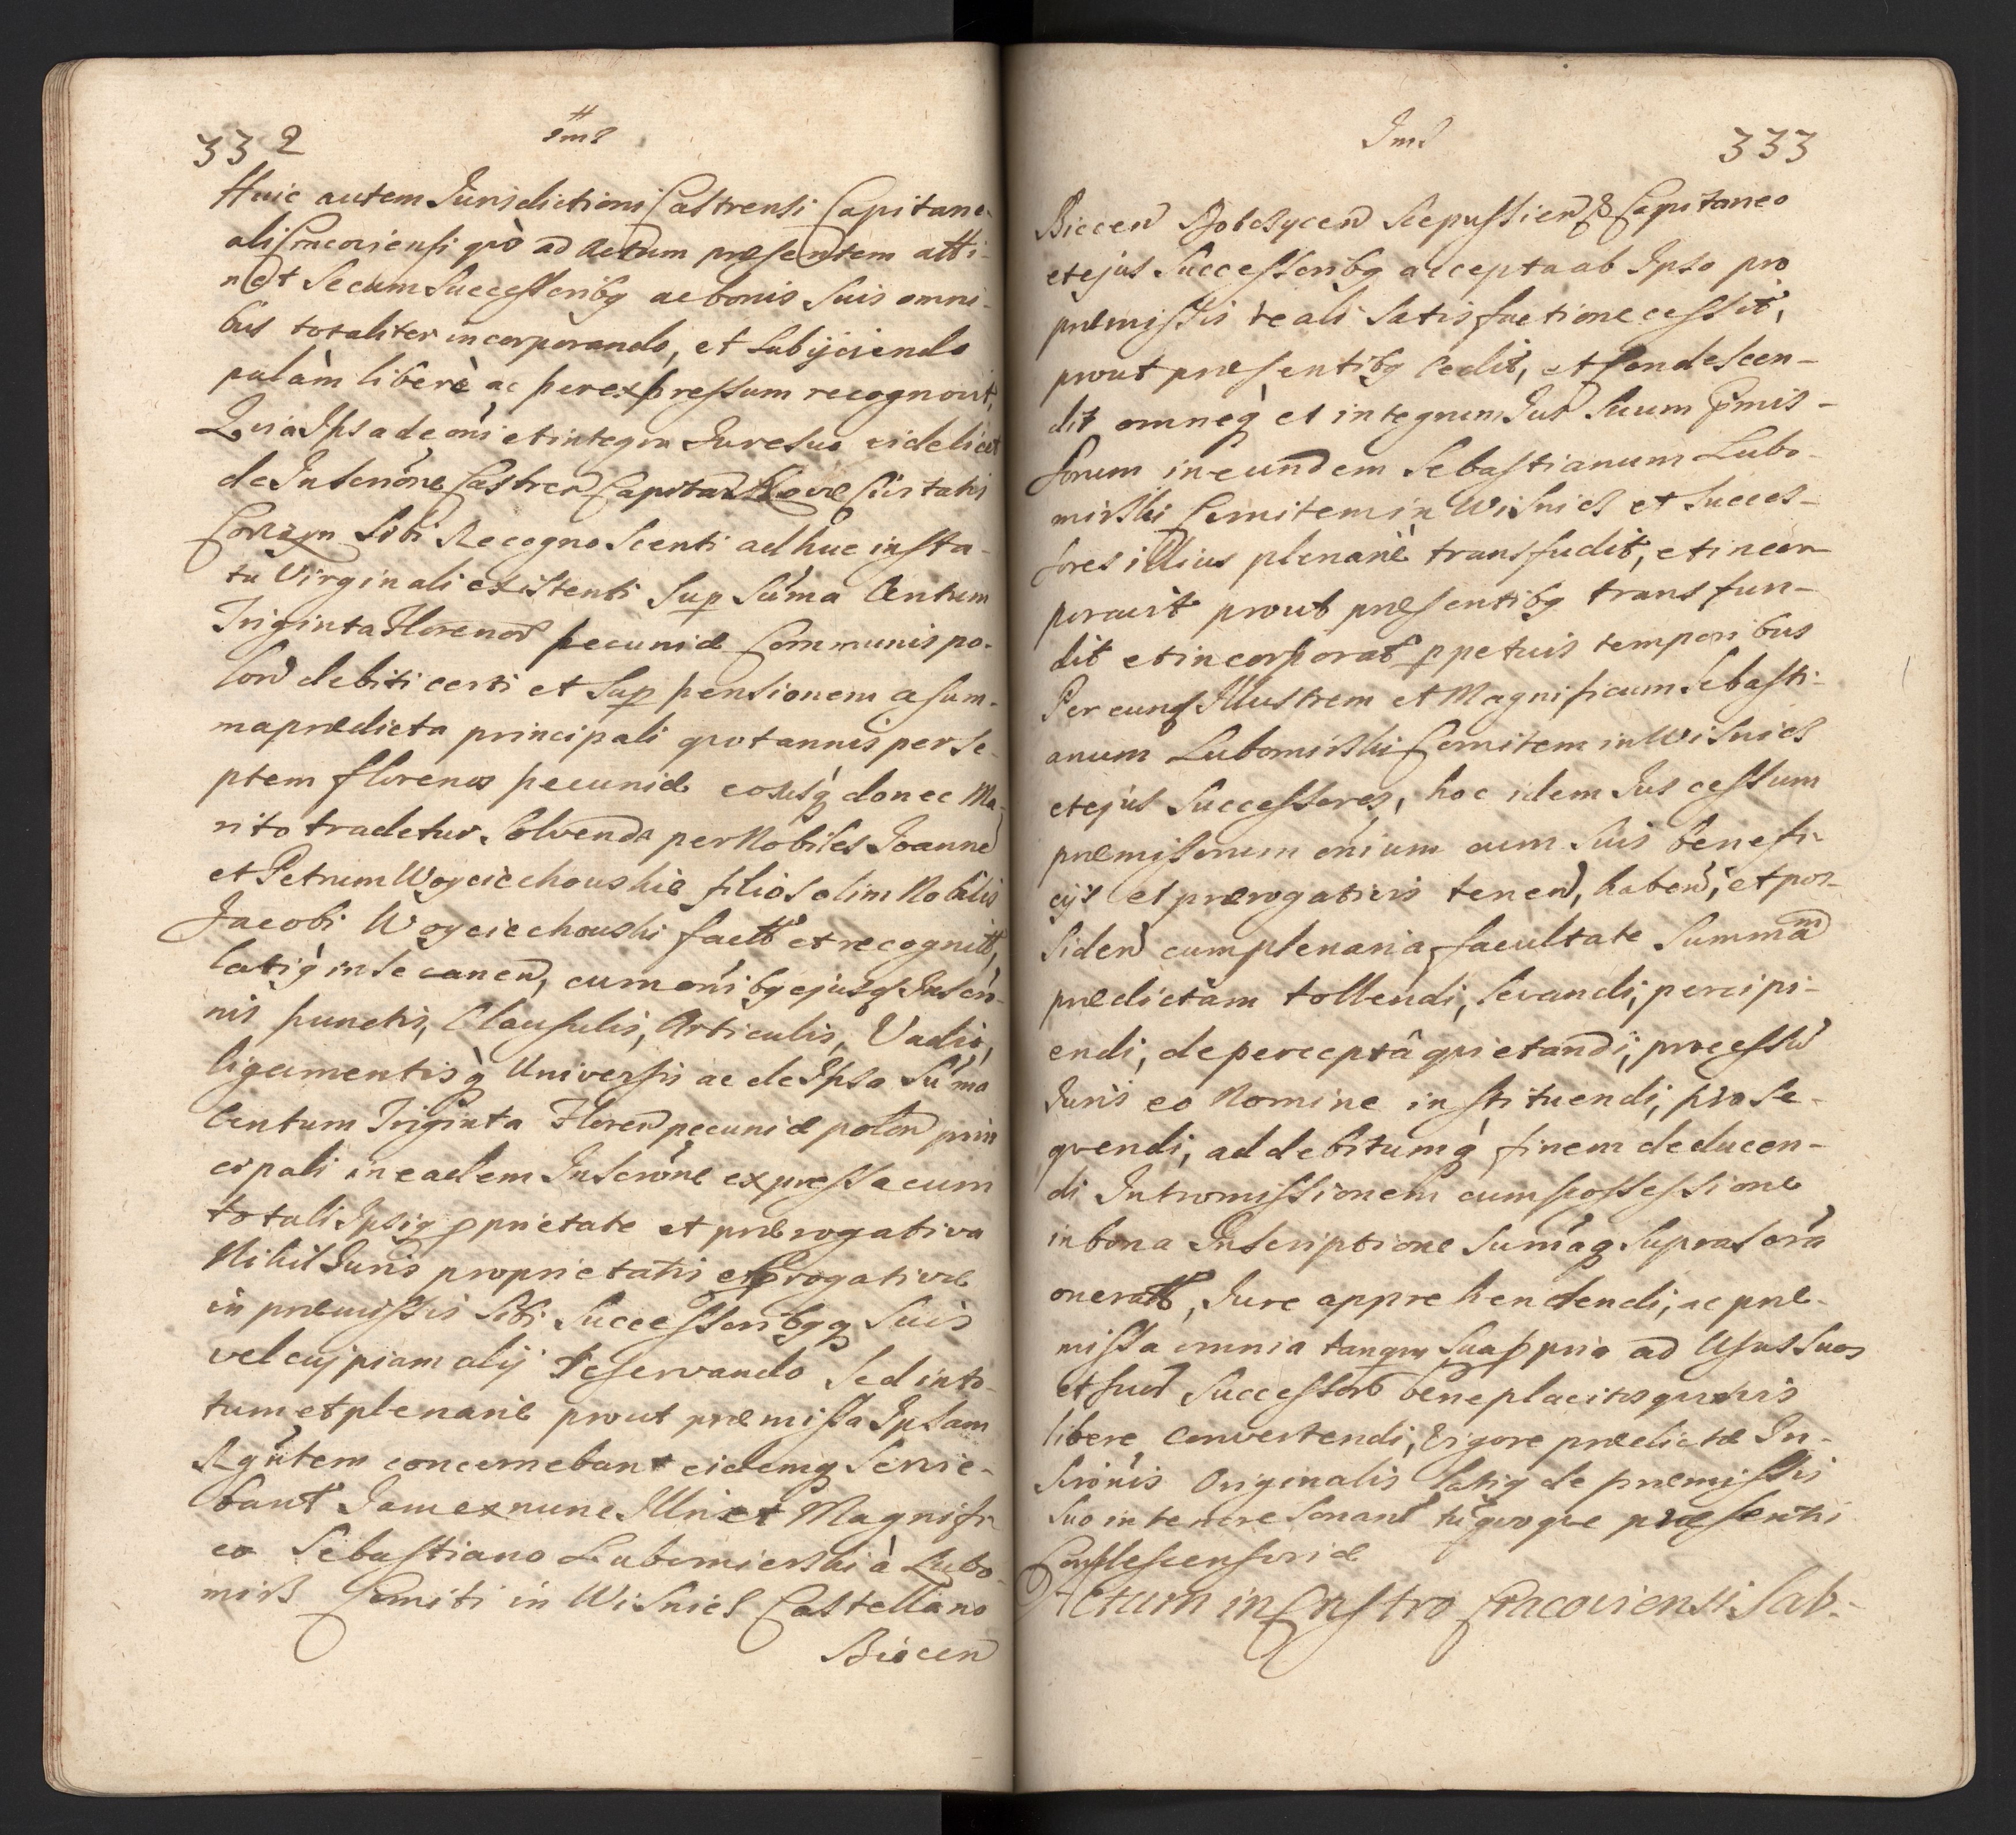 332
Jmſ
Huic autem Jurisdictioni Castrensi Capitane-
ali Cracoviensi quò ad Actum præsentem atti-
net Se cum Successoribq ac bonis Suis omni-
bus totaliter incorporando, et Subijciendo
palàm liberè ac per expressum recognovit,
Quia Ipsa de oni et integro Jure suo videlicet
de Inscrione Castren Capitan Novæ Civitatis
Corczyn Sibi Recognoscenti adhuc in sta-
tu Virginali existenti Sup Suma Centum
Triginta Floreno pecuniæ Communis po-
lon debiti certi et Sup pensionem a sum-
ma prædicta principali quotannis per Se-
ptem florenos pecuniæ eousq donec Ma-
rito tradetur Solvenda per Nobiles Joanne
et Petrum Woyciechouskie filios olim Nobilis
Jacobi Woyciechouski fact et recognit,
latiq in Se canen, cum onibq ejusq Inscrio-
nis punctis, Clausulis, Articulis, Vadio,
ligamentisq Universis ac de Ipsa Suma
Centum Triginta Floren pecuniæ polon prin
cipali in eadem Inscrione expressa cum
totali Ipsiq pprietate et prærogativa
Nihil Juris proprietatis et progativæ
in præmissis Sibi Successoribqq Suis
vel cujpiam alij reservando Sed in to-
tum et plenarie prout præmissa Ipsam
Rgntem concernebant eidemq Servie-
bant Jam ex nunc Illri et Magnifi
co Sebastiano Lubomierski à Lubo-
mirz Comiti in Wisnicz Castellano
Biecen
Jmſ
333
Biecen Dobczycen Scepussien & Capitaneo
et ejus Successoribq accepta ab Ipso pro
præmissis reali Satisfactione cessit,
prout præsentibq Cedit, et Condescen-
dit omneq et integrum Jus Suum pmis-
sorum in eundem Sebastianum Lubo-
mirski Comitem in Wisnicz et Succes-
sores illius plenariè transfudit, et incor
poravit prout præsentibq transfun-
dit et incorporat ppetuis temporibus
Per eunq Illustrem et Magnificum Sebasti-
anum Lubomirski Comitem in Wisnicz
et ejus Successores, hoc idem Jus cessum
præmissorum onium cum Suis benefi-
cijs et prærogativis tenen, haben, et pos-
siden cum plenaria facultate Summam
prædictam tollendi, levandi, percipi-
endi, de perceptâ quietandi, processu
Juris eo Nomine instituendi, prose-
quendi, ad debitumq finem deducen-
di Intromissionem cum possessione
in bona Inscriptione Sumaq Suprascra
onerat, Jure apprehendendi, ac præ-
missa omnia tanqm Sua ppria ad Usus Suos
et Suor Successor beneplacitos quosvis
libere Convertendi, Vigore prædictæ In-
scrionis Originalis latiq de præmissis
Suo in tenore Sonan tu quoque præsentis
Condescensoriæ
Actum in Castro Cracoviensi Sab-